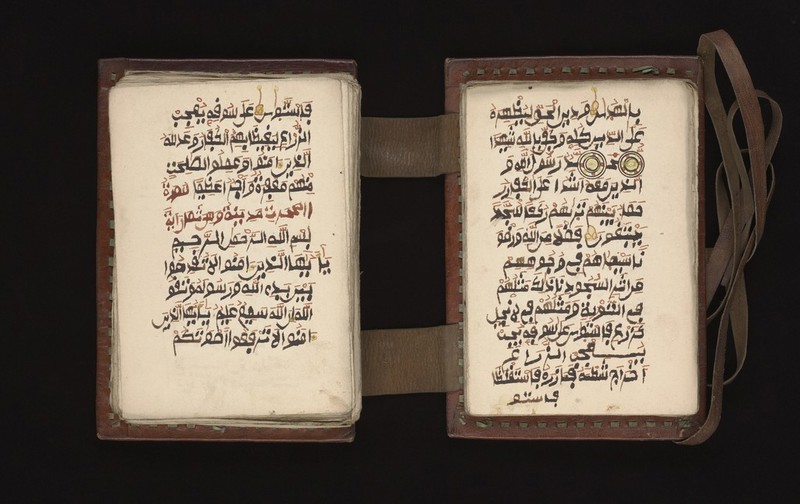 بالهدى ودين الحق ليظهره
على الدين كله وكفى بالله شهيدا
محمد رسول الله و
الذين معه اشداء على الكفار ر
حماء بينهم تريهم ركعا سجدا
يبتغون فضلا من الله ورضو
نا سيماهم في وجوههم
من اثر السجود ذلك مثلهم
في التورية ومثلهم في الانجيل
كزرع فاستوى على سوقه يعجب
الزراع
اخرج شطئه فازره فاستغلظ
فاستو
فاستوى على سوقه يعجب
الزراع ليغيظ بهم الكفار وعد الله
الذين امنوا وعملوا الصلحت
منهم مغفرة واجرا عظيما سورة
الحجرات مدينة وهي اية
بسم الله الرحمن الرحيم
يا يها الذين امنوا لا تقدموا
بين يدي الله ورسوله واتقوا
الله ان الله سميع عليم يا يها الذين
امنوا لا ترفعوا اصوتكم